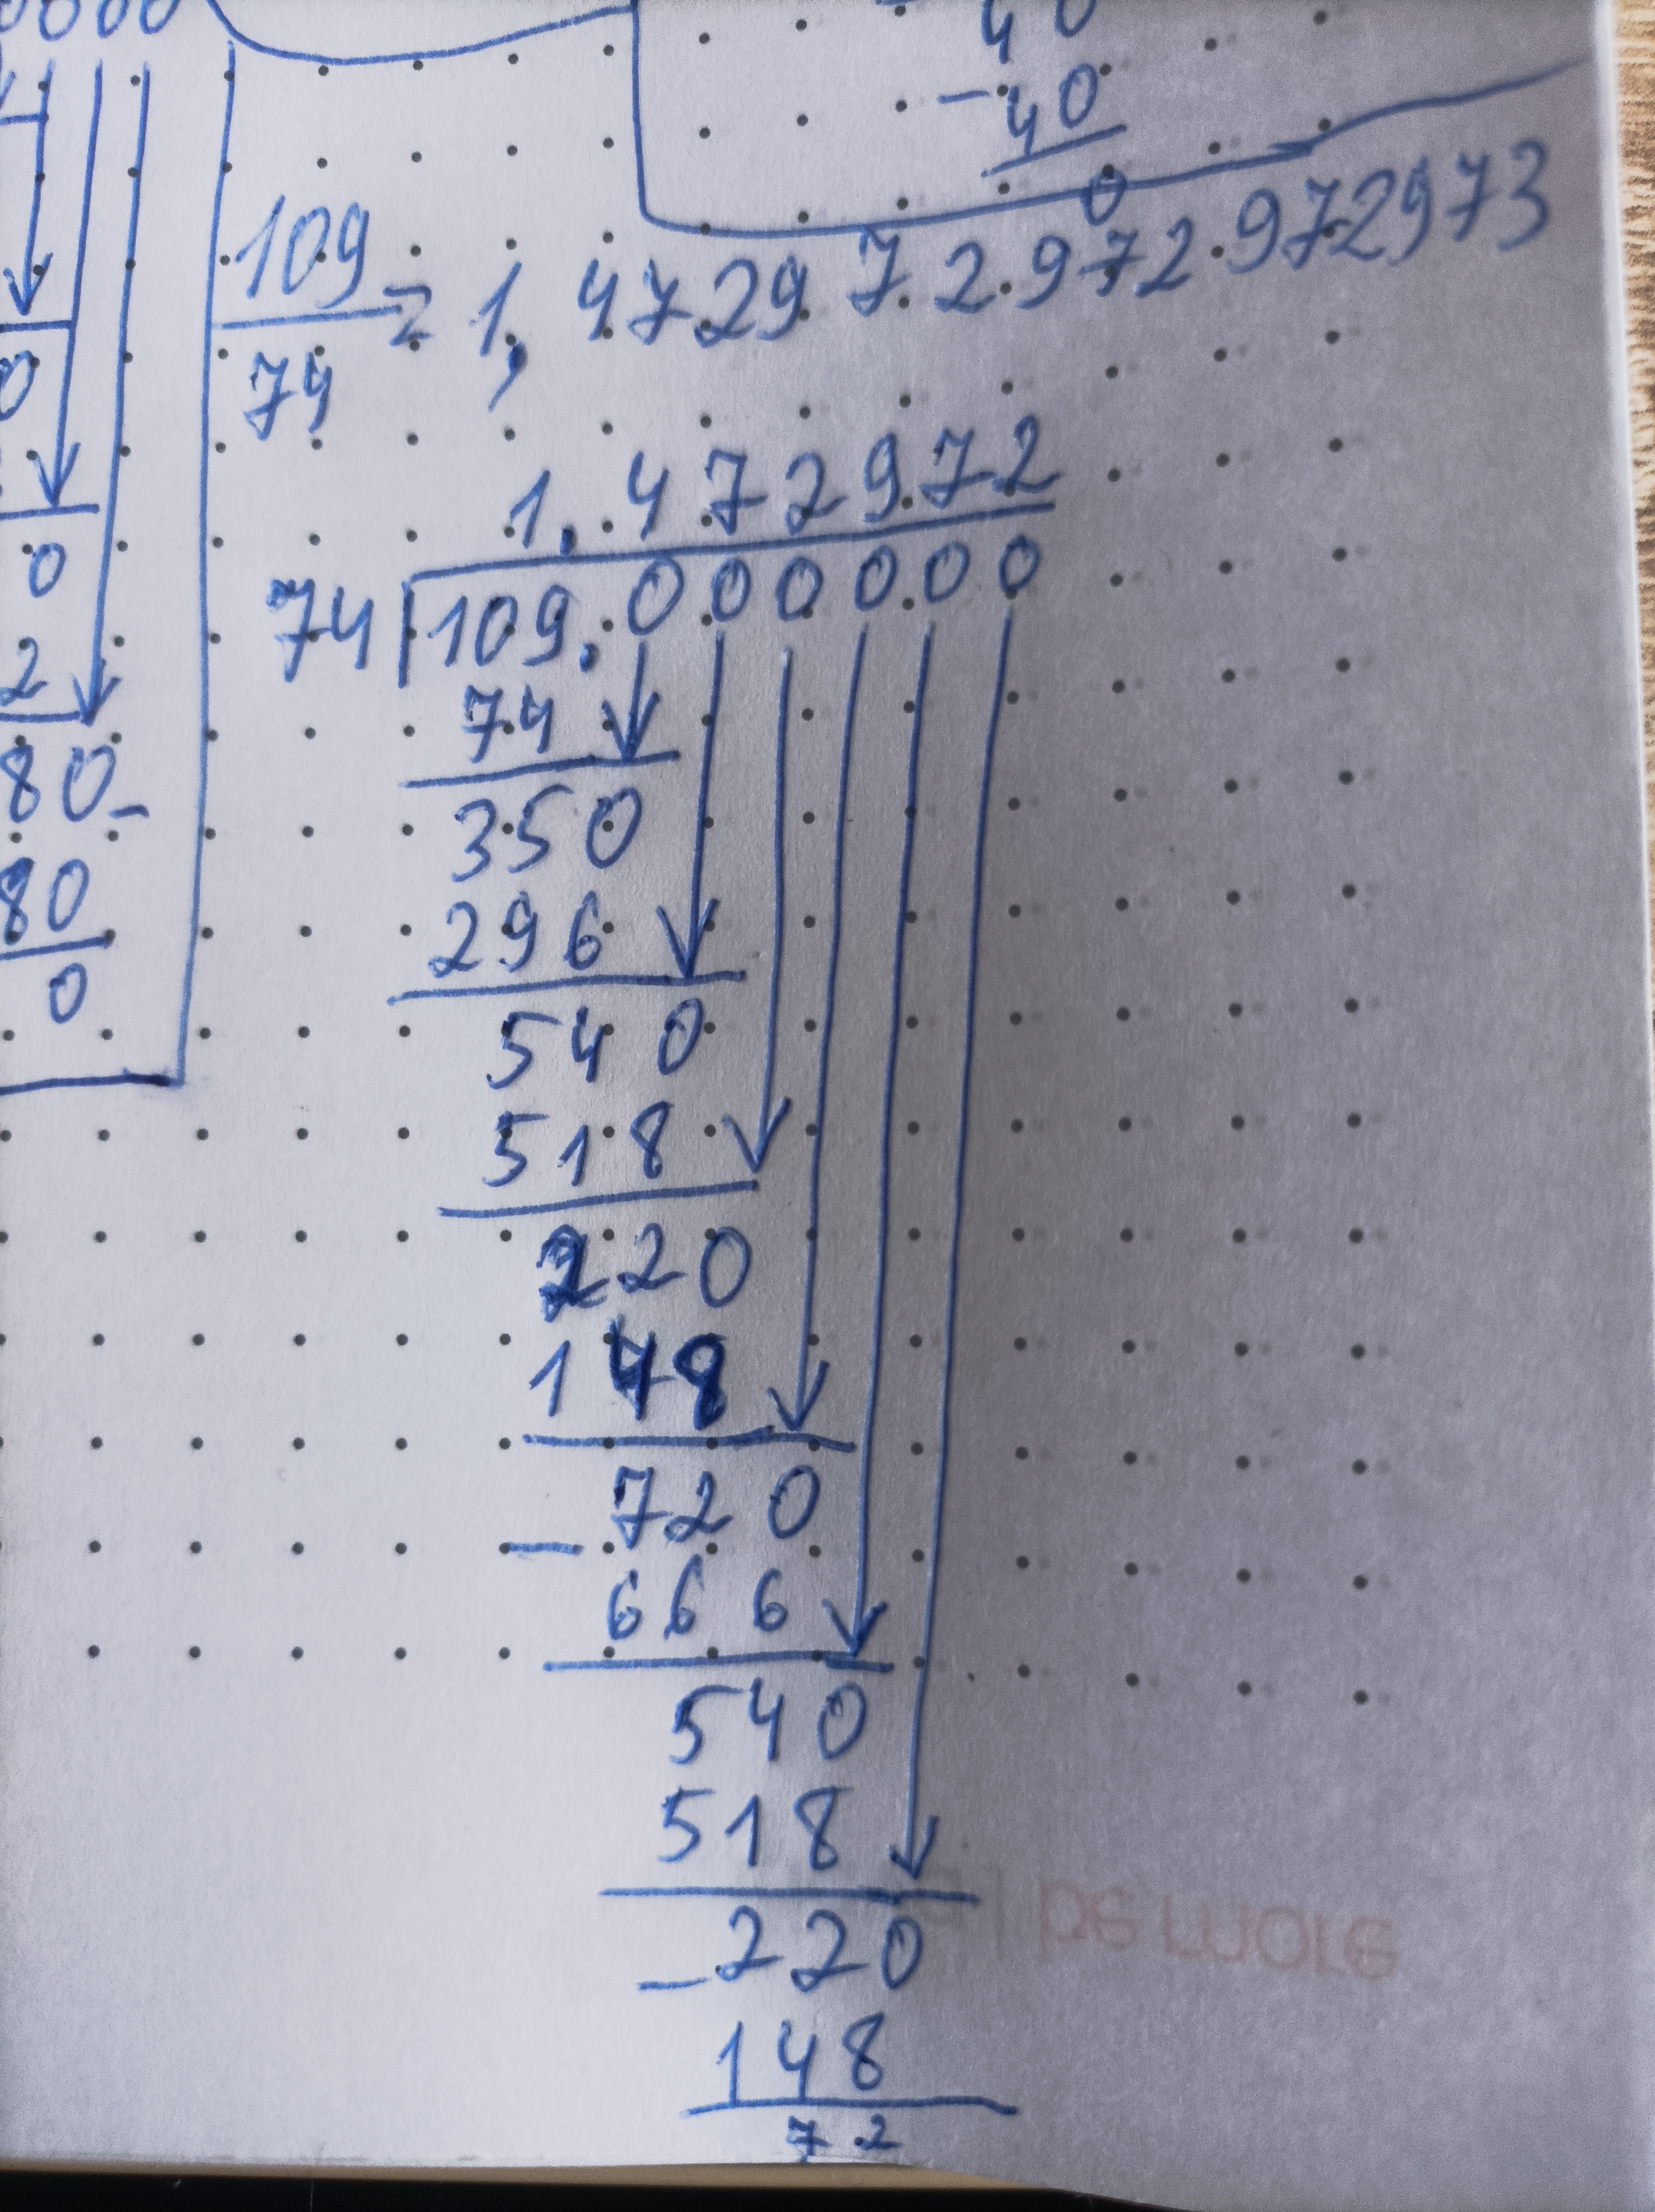 0000
40
-40
0
109
74
= 1,472972972972973
1.472972
74 109.000000
74
350
296
540
518
220
148
720
- 666
540
518
220
- 148
72
0
0
2
80-
80
0
be more